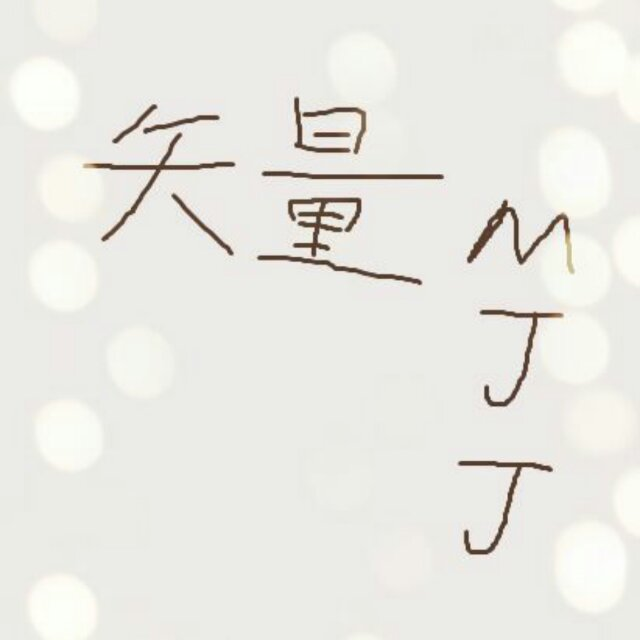 矢量
M
J
J